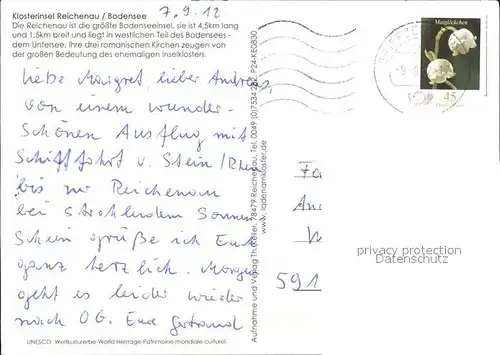 Klosterinsel Reichenau / Bodensee
7.9.12
Die Reichenau ist die größte Bodenseeinsel, sie ist 4,5km lang
und 1,5km breit und liegt in westlichen Teil des Bodensees -
dem Untersee. Ihre drei romanischen Kirchen zeugen von
der großen Bedeutung des ehemaligen Inselklosters.
Liebe Maigret, lieber Andreas,
von einem wunder-
schönen Ausflug mit
Schifffahrt v. Stein/Rhein
bis zur Reichenau
bei strahlendem Sonnen
schein grüße ich Euch
ganz herzlich. Morgen
geht es leider wieder
nach OG. Eure Gertraud
UNESCO Weltkulturerbe World Heritage-Patrimoine mondiale culturel
Aufnahme und Verlag 78479 Reichenau, Tel. 0049 (0)7534 P24-KE0830
www.ladenamkloster.de
Maiglöckchen
45
Fa
An
591
privacy protection
Datenschutz